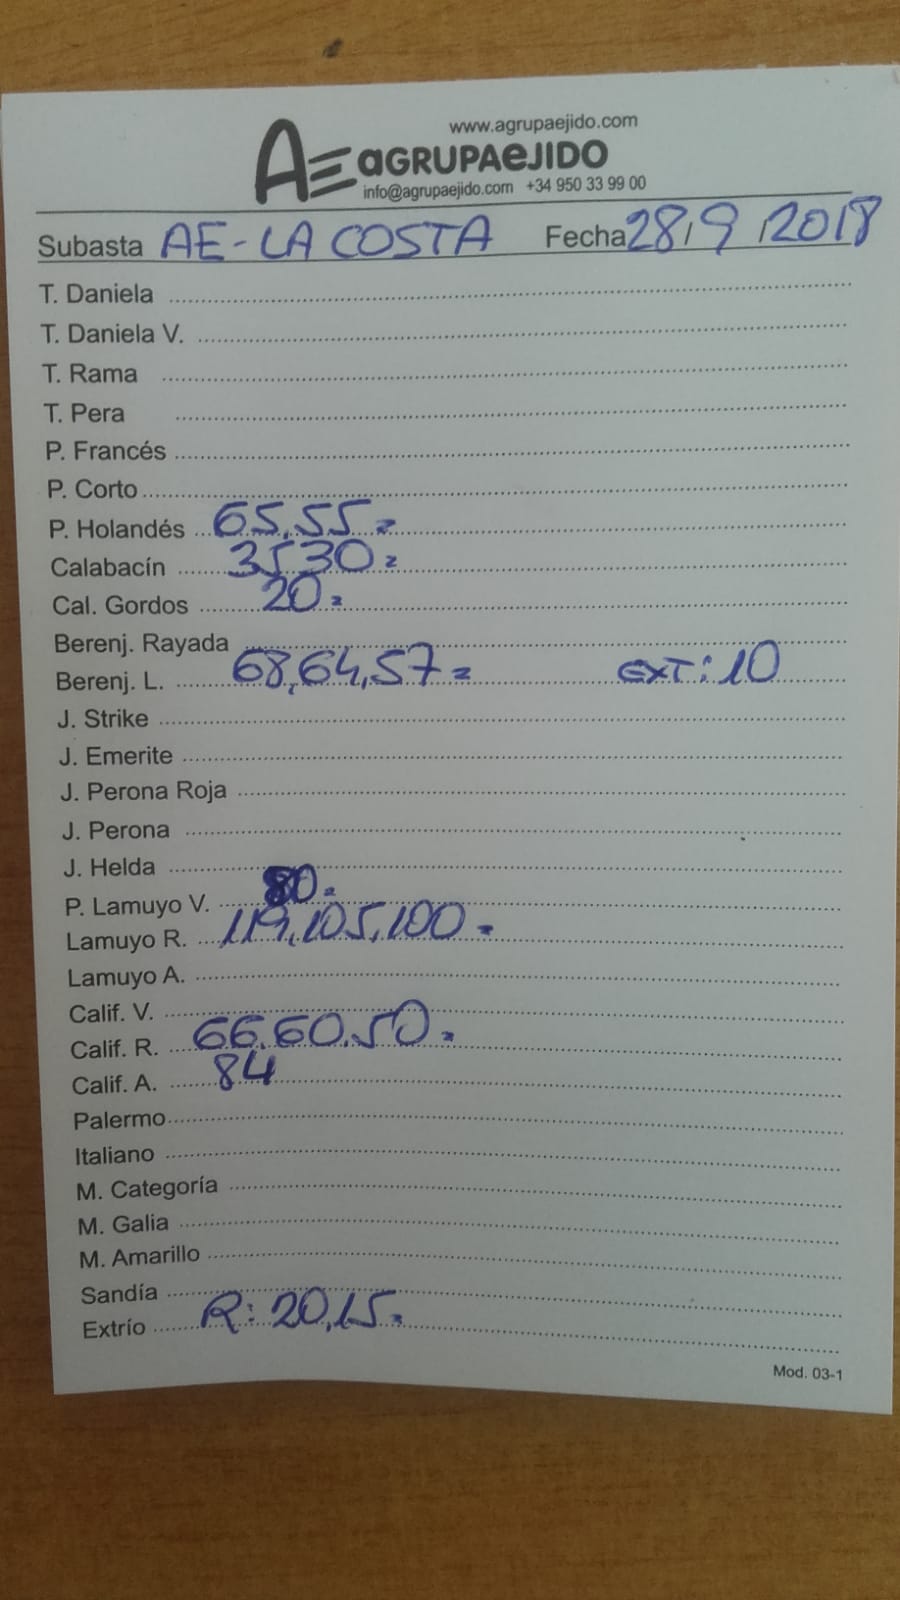 www.agrupaejido.com
AE aGRUPAeJIDO
info@agrupaejido.com +34 950 33 99 00
Subasta AE-LA COSTA Fecha 28/9/2018
T. Daniela
T. Daniela V.
T. Rama
T. Pera
P. Francés
P. Corto
P. Holandés 65,55=
Calabacín 35,30=
Cal. Gordos 20=
Berenj. Rayada
Berenj. L. 68,64,57= EXT: 10
J. Strike
J. Emerite
J. Perona Roja
J. Perona
J. Helda
P. Lamuyo V. 80=
Lamuyo R. 119,105,100=
Lamuyo A.
Calif. V.
Calif. R. 66,60,50=
Calif. A. 84
Palermo
Italiano
M. Categoría
M. Galia
M. Amarillo
Sandía
Extrío R: 20,15=
Mod. 03-1